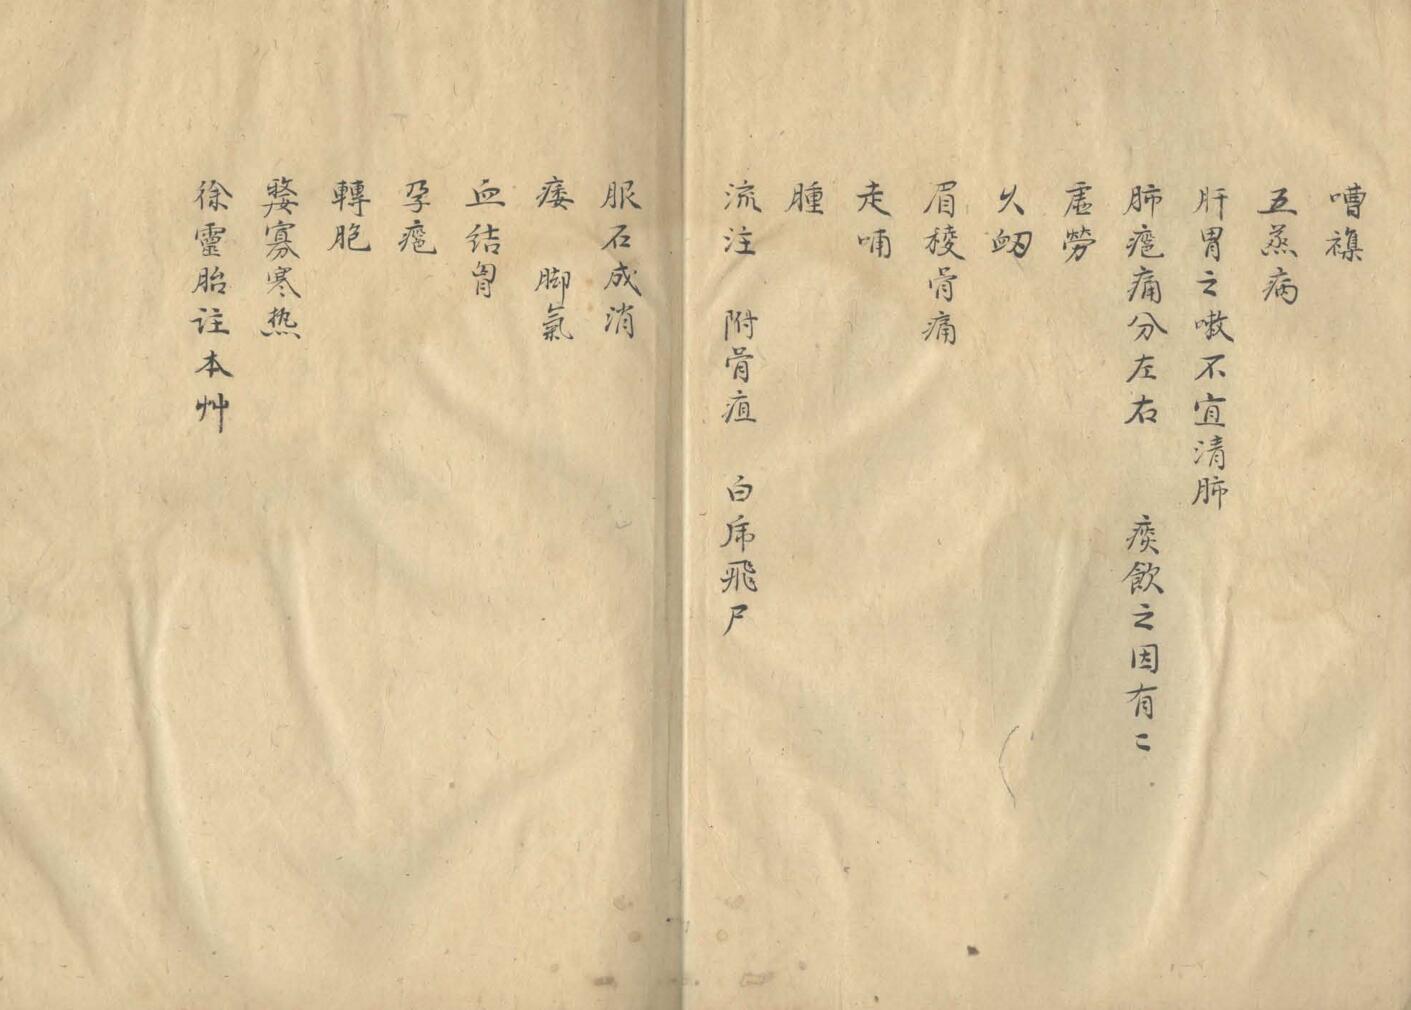 嘈襍
五蒸病
肝胃之嗽不宜清肺
肺癰痛分左右 痰飲之因有二
虛勞
久衄
眉稜骨痛
走哺
腫
流注 附骨疽 白虎飛尸
服石成消
痿 脚氣
血结胷
孕癰
轉胞
婺寡寒热
徐靈胎註本艸